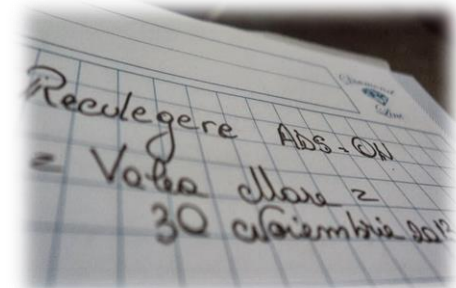 Reculegere ADS-ON
= Valea Mare =
30 Noiembrie